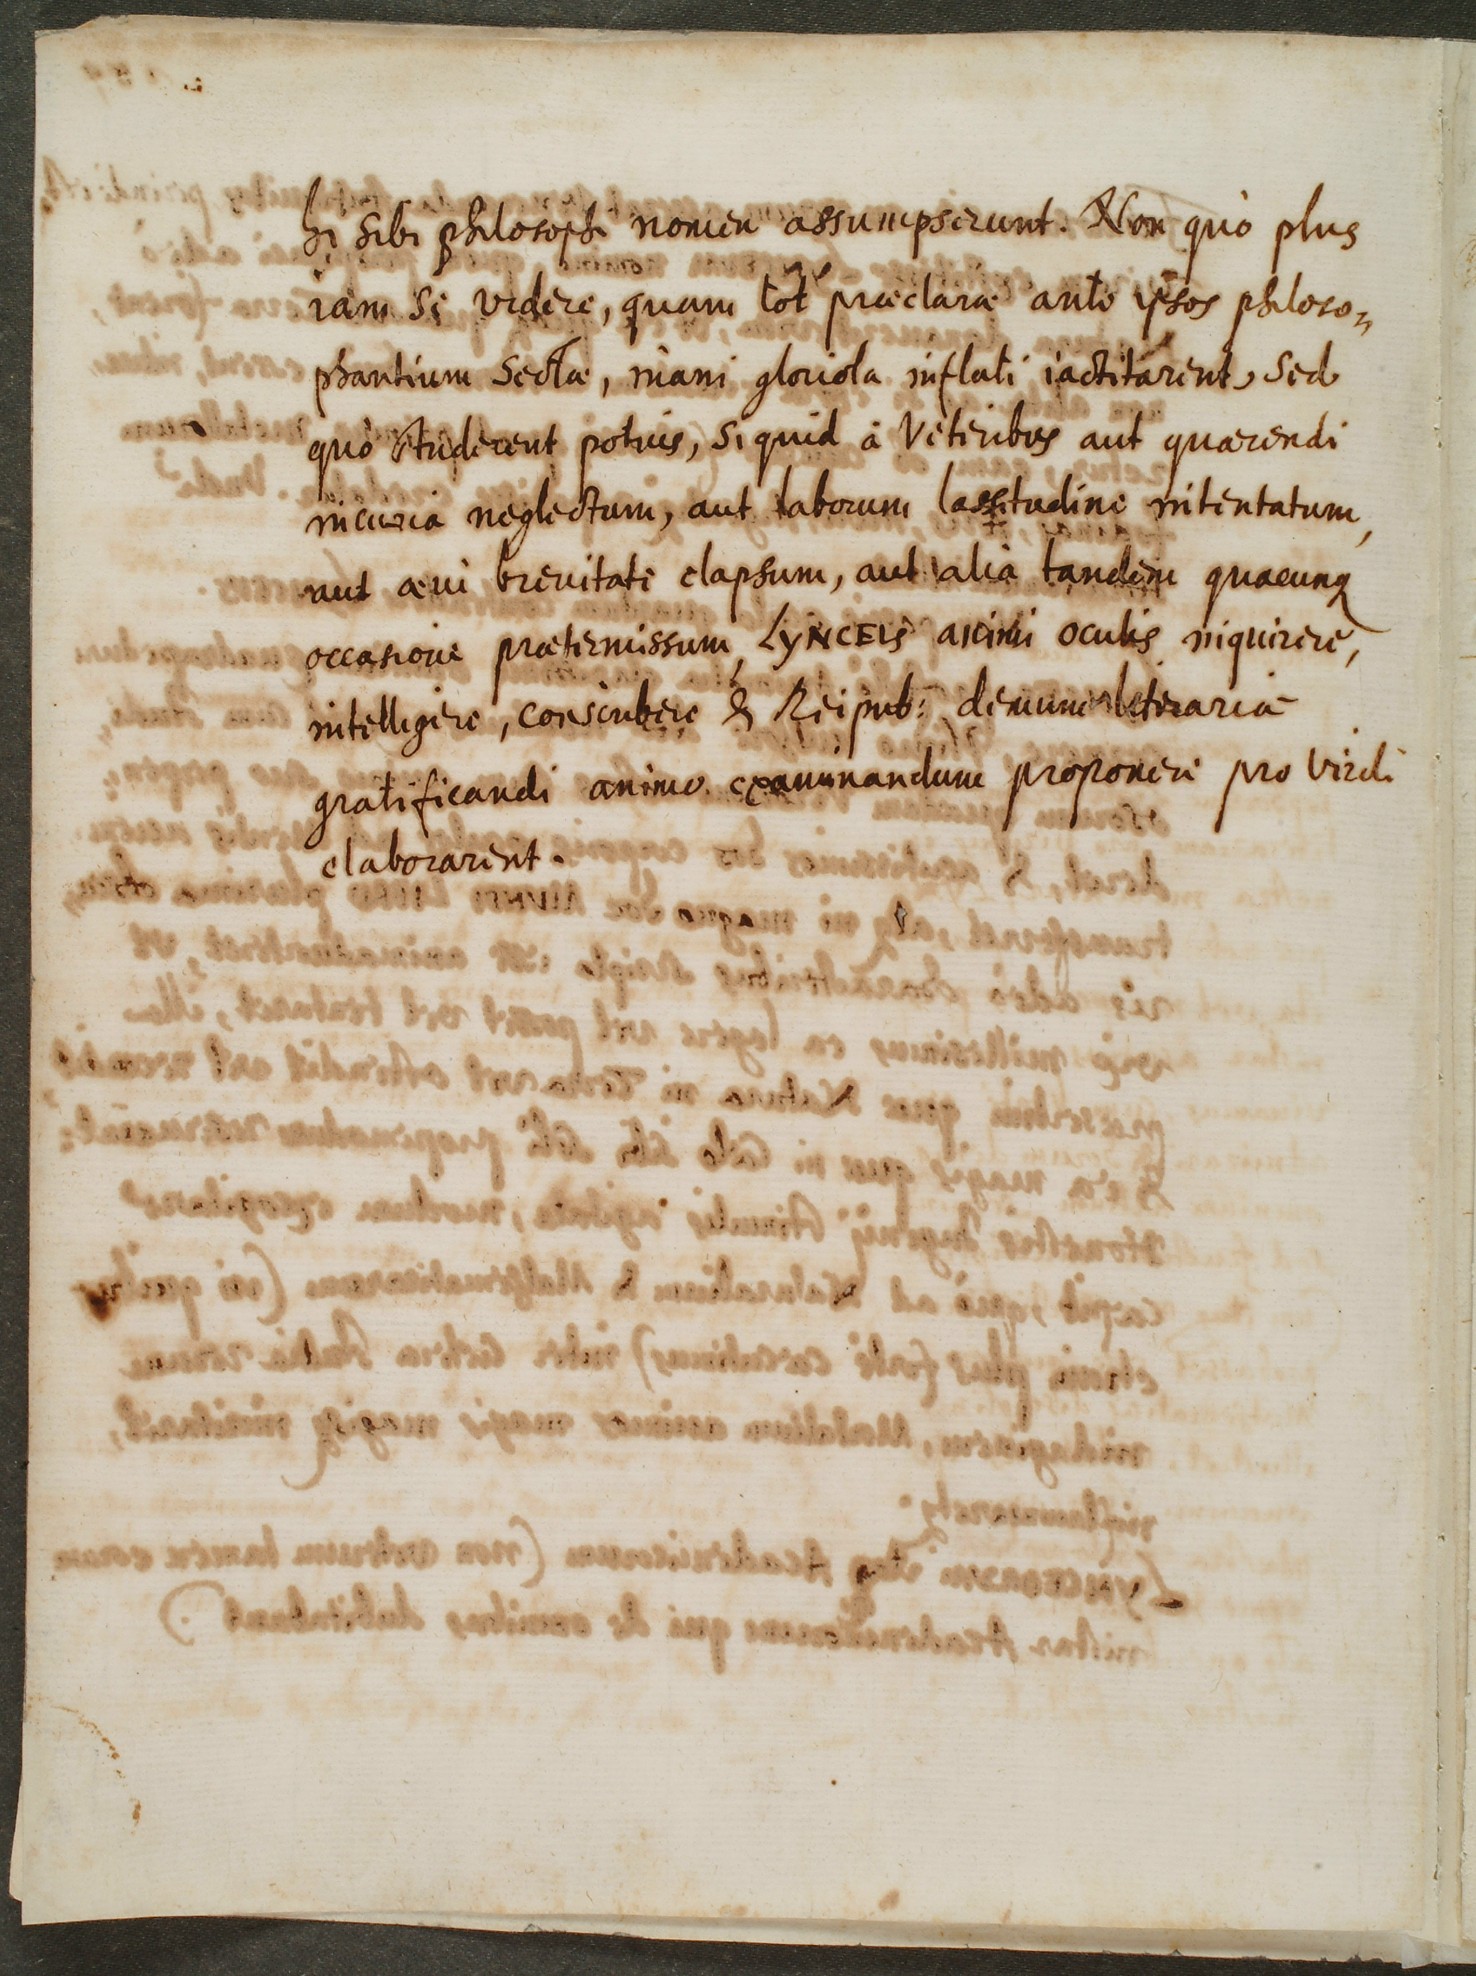 hi sibi philosophi nomen assumpserunt. Non quò plus
iam se videre, quam tot præclaræ ante ipsos philoso=
phantium Sectæ, inani gloriola inflati iactitarent, Sed
quò studerent potius, si quid à Veteribus aut quærendi
incuria neglectum, aut laborum lassitudine intentatum,
aut æui breuitate elapsum, aut alia tandem quacunq
occasione prætermissum, LYNCEIS animi oculis inquirere,
intelligere, conscribere & Reipub: demum literariæ
gratificandi animo examinandum proponere pro virili
elaborarent.